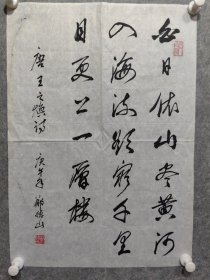 白日依山尽黄河
入海流欲穷千里
目更上一層楼
唐王之涣诗 庚午年